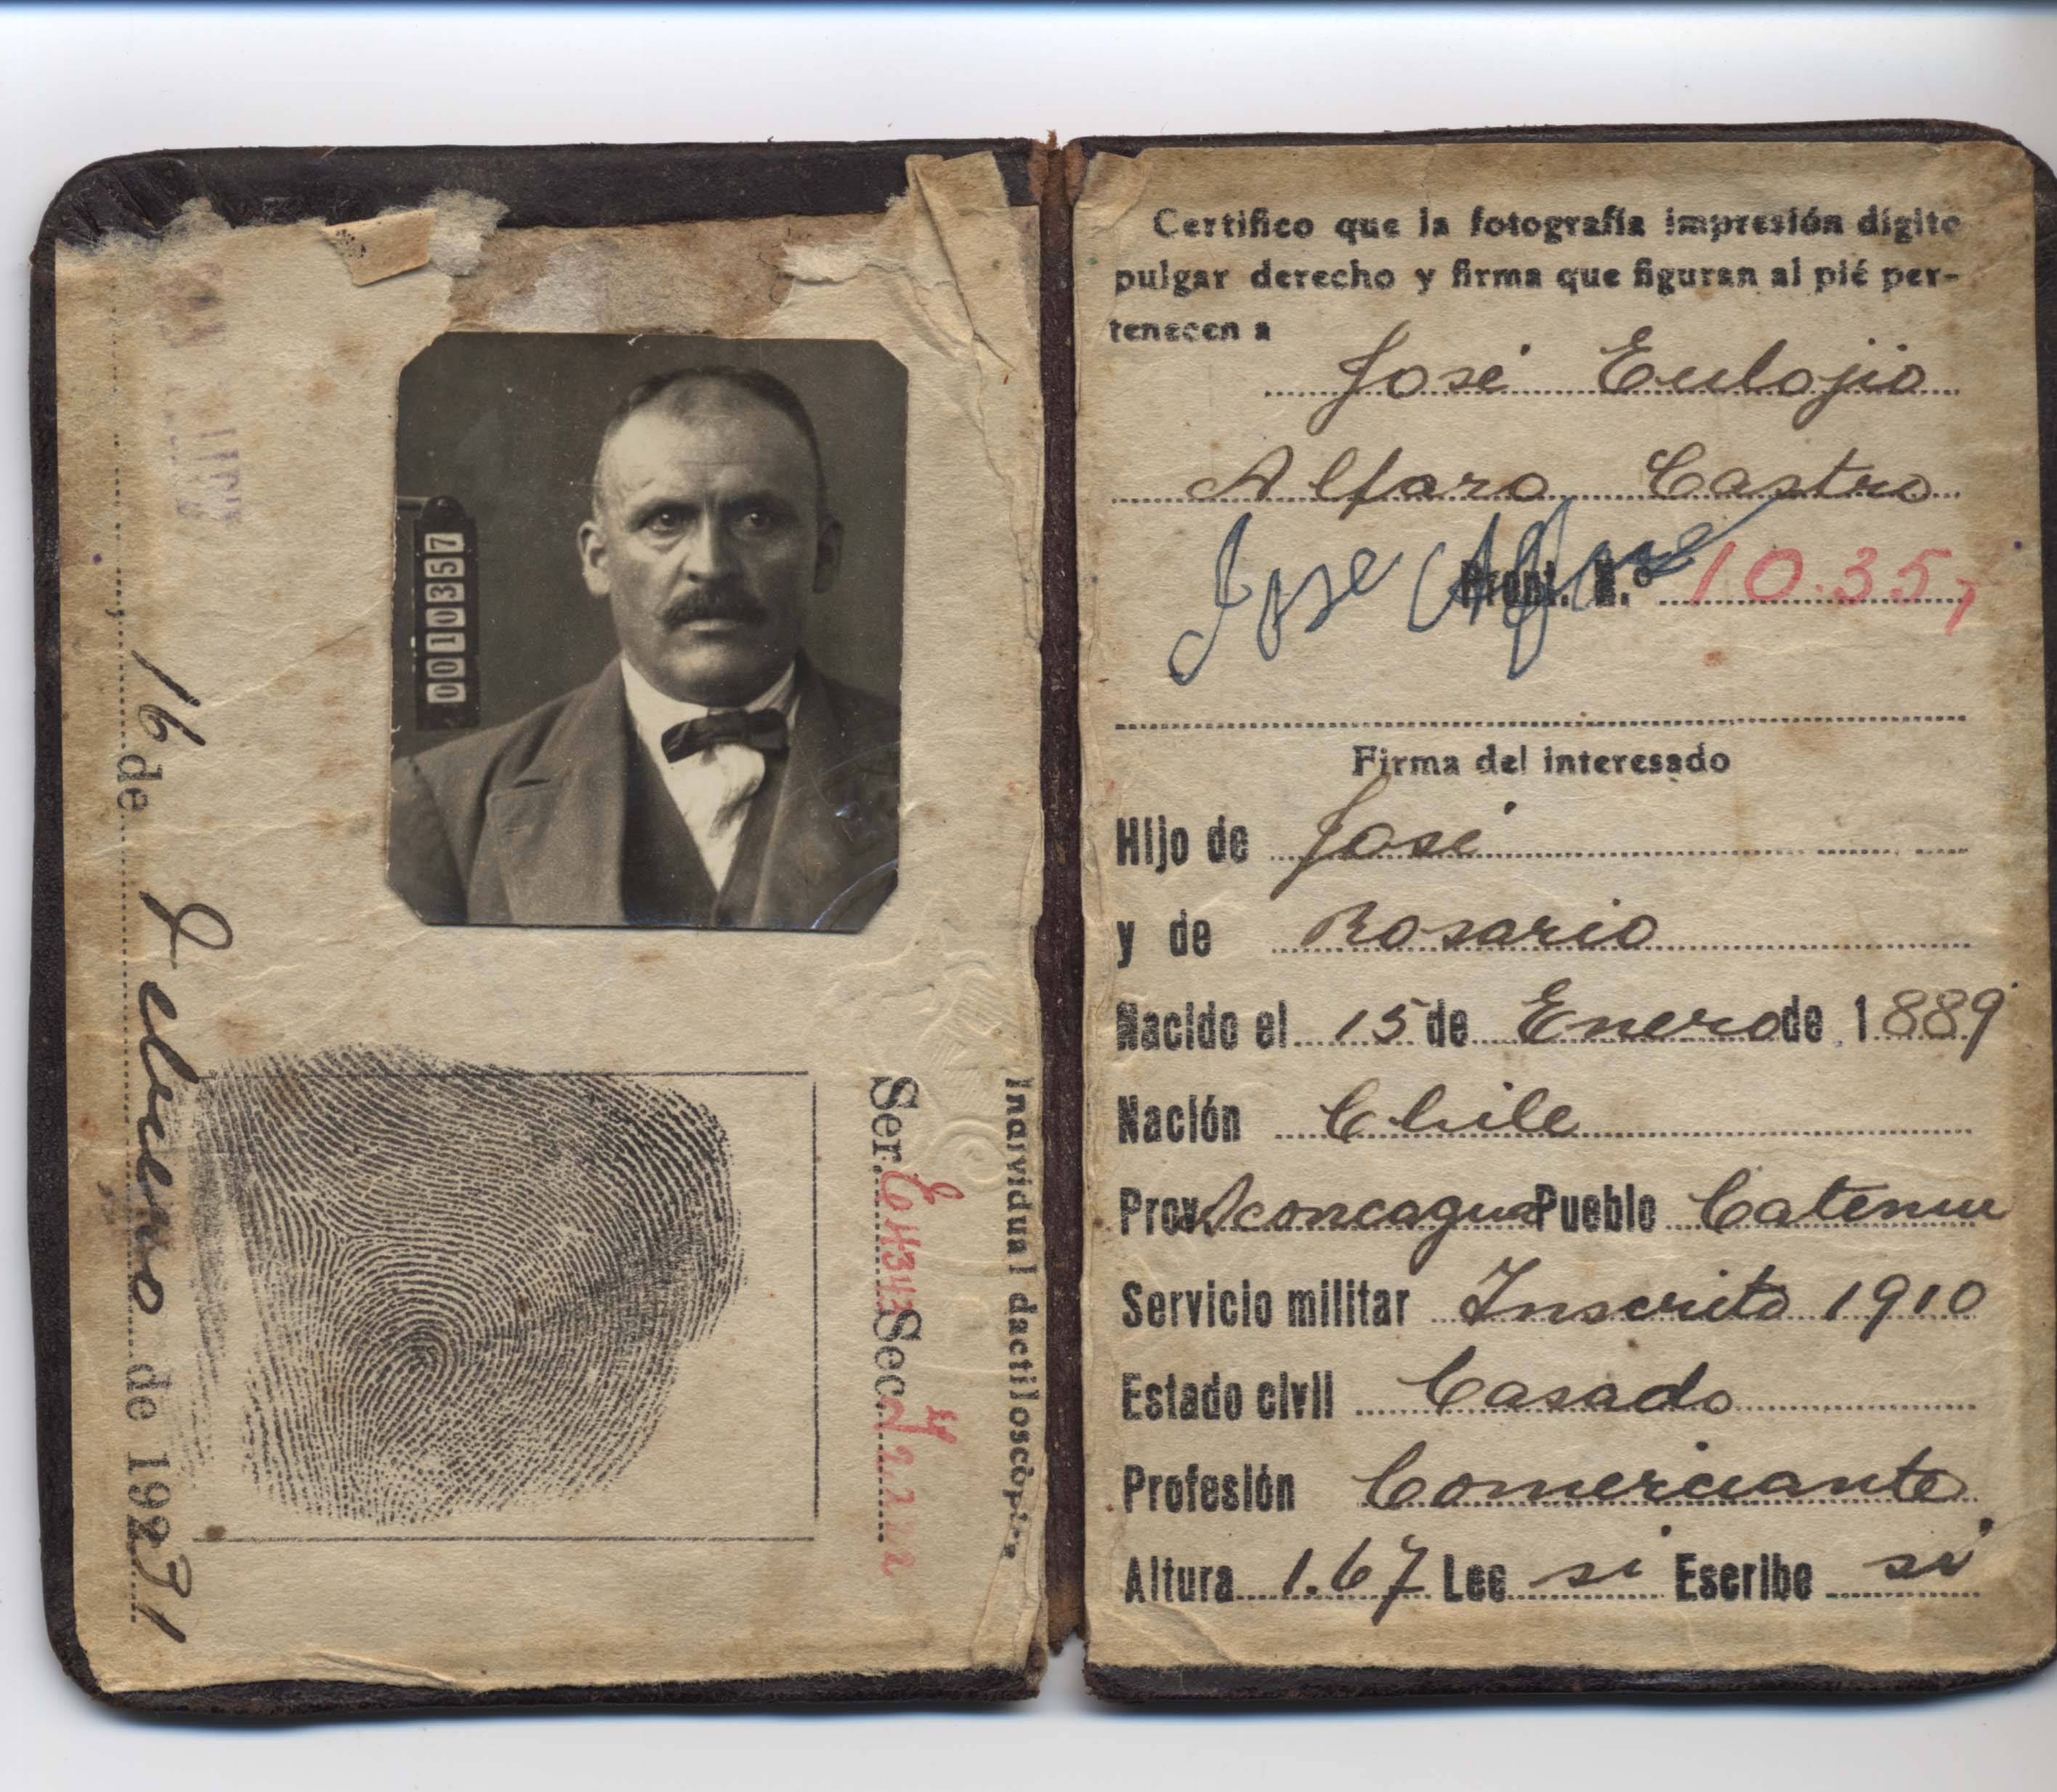 0010357
16 de Febrero de 19231
Individual dactiloscópica
Ser. E4343 Secc.
Certifico que la fotografía impresión dígito
pulgar derecho y firma que figuran al pié per-
tenecen a
José Eulojio
Alfaro Castro
Jose Alfaro
Pront. N.º 10.357
Firma del interesado
Hijo de José
y de Rosario
Nacido el 15 de Enero de 1889
Nación Chile
Prov. Aconcagua Pueblo Catemu
Servicio militar Inscrito 1910
Estado civil Casado
Profesión Comerciante
Altura 1.67 Lee si Escribe si